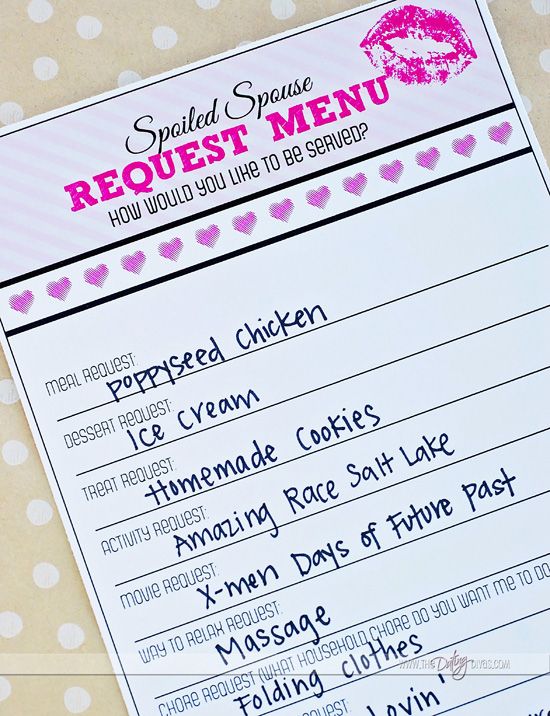 Spoiled Spouse
REQUEST MENU
HOW WOULD YOU LIKE TO BE SERVED?
MEAL REQUEST:
Poppyseed Chicken
DESSERT REQUEST:
Ice Cream
TREAT REQUEST:
Homemade Cookies
ACTIVITY REQUEST:
Amazing Race Salt Lake
MOVIE REQUEST:
X-men Days of Future Past
WAY TO RELAX REQUEST:
Massage
CHORE REQUEST (WHAT HOUSEHOLD CHORE DO YOU WANT ME TO DO
Folding Clothes
REQUEST:
Lovin'
WWW.THE Dating DIVAS.COM